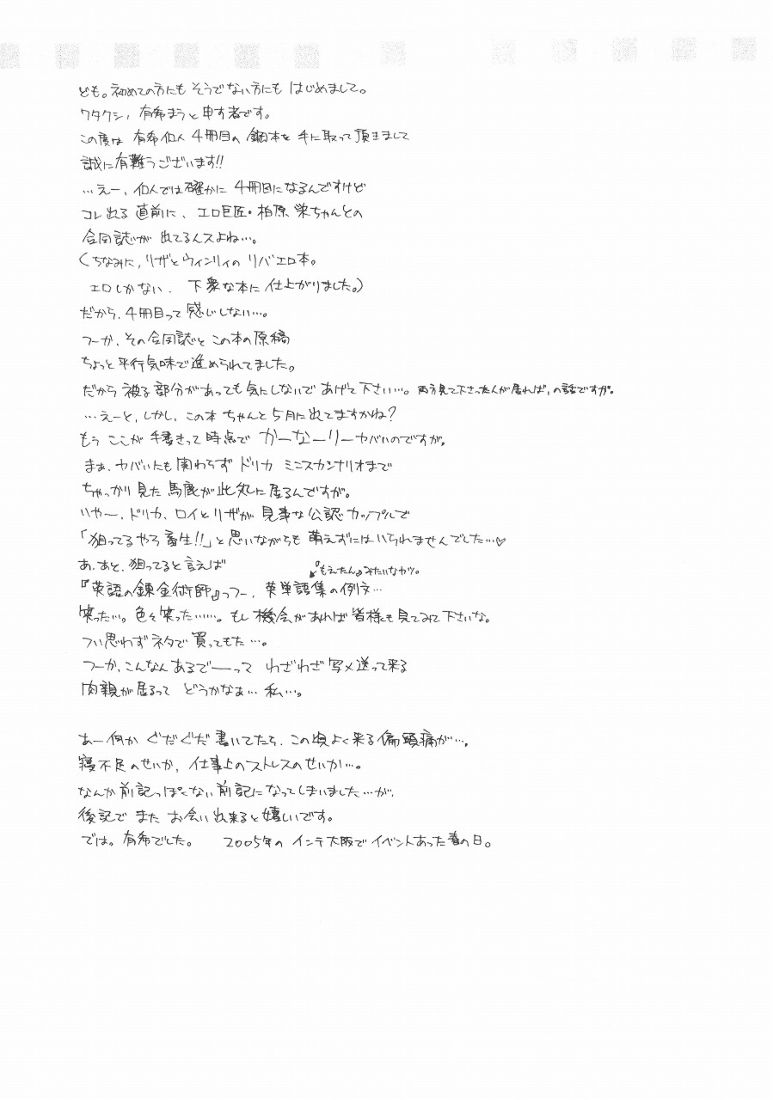 ども。初めての方にも そうでない方にも はじめまして。
ワタクシ、有希まうと申す者です。
この度は 有希個人 4冊目の 鋼本を 手に取って頂きまして
誠に有難うございます!!
…えー、個人では確かに 4冊目になるんですけど
コレ出る 直前に、エロ巨匠・柏原 栄ちゃんとの
合同誌が 出てるんスよね…。
(ちなみに、リザとウィンリィの リバエロ本。
エロしかない、下衆な本に 仕上がりました。)
だから、4冊目って感じしない…。
つーか、その合同誌と この本の原稿
ちょっと平行気味で進められてました。
だから 被る部分があっても気にしないで あげて下さい…。両方見て下さった人が居れば、の話ですが。
…えーと、しかし、この本 ちゃんと 5月に出てますかね?
もう ここが 手書きって時点で かーなーりーヤバいのですが。
まぁ、ヤバいにも 関わらず ドリカ ミニスカシナリオまで
ちゃっかり見た 馬鹿が此処に居るんですが。
いやー、ドリカ、ロイとリザが 見事な公認カップルで
「狙ってるやろ畜生!!」と思いながらも 萌えずにはいられませんでした…♡
あ、あと、狙ってると言えば
『もえたん』みたいなヤツ。
『英語の錬金術師』っつー、英単語集の例文…
笑った…。色々笑った……。もし 機会があれば皆様も見てみて下さいな。
つい思わずネタで 買ってもた…。
つーか、こんなん あるでーーって わざわざ 写メ送って来る
肉親が居るって どうかなぁ… 私…。
あー何か ぐだぐだ 書いてたら、この頃よく来る偏頭痛が…。
寝不足のせいか、仕事上のストレスのせいか…。
なんか前記っぽくない前記になってしまいました…が、
後記で また お会い出来ると嬉しいです。
では。有希でした。 2005年の インテ大阪でイベントあった春の日。